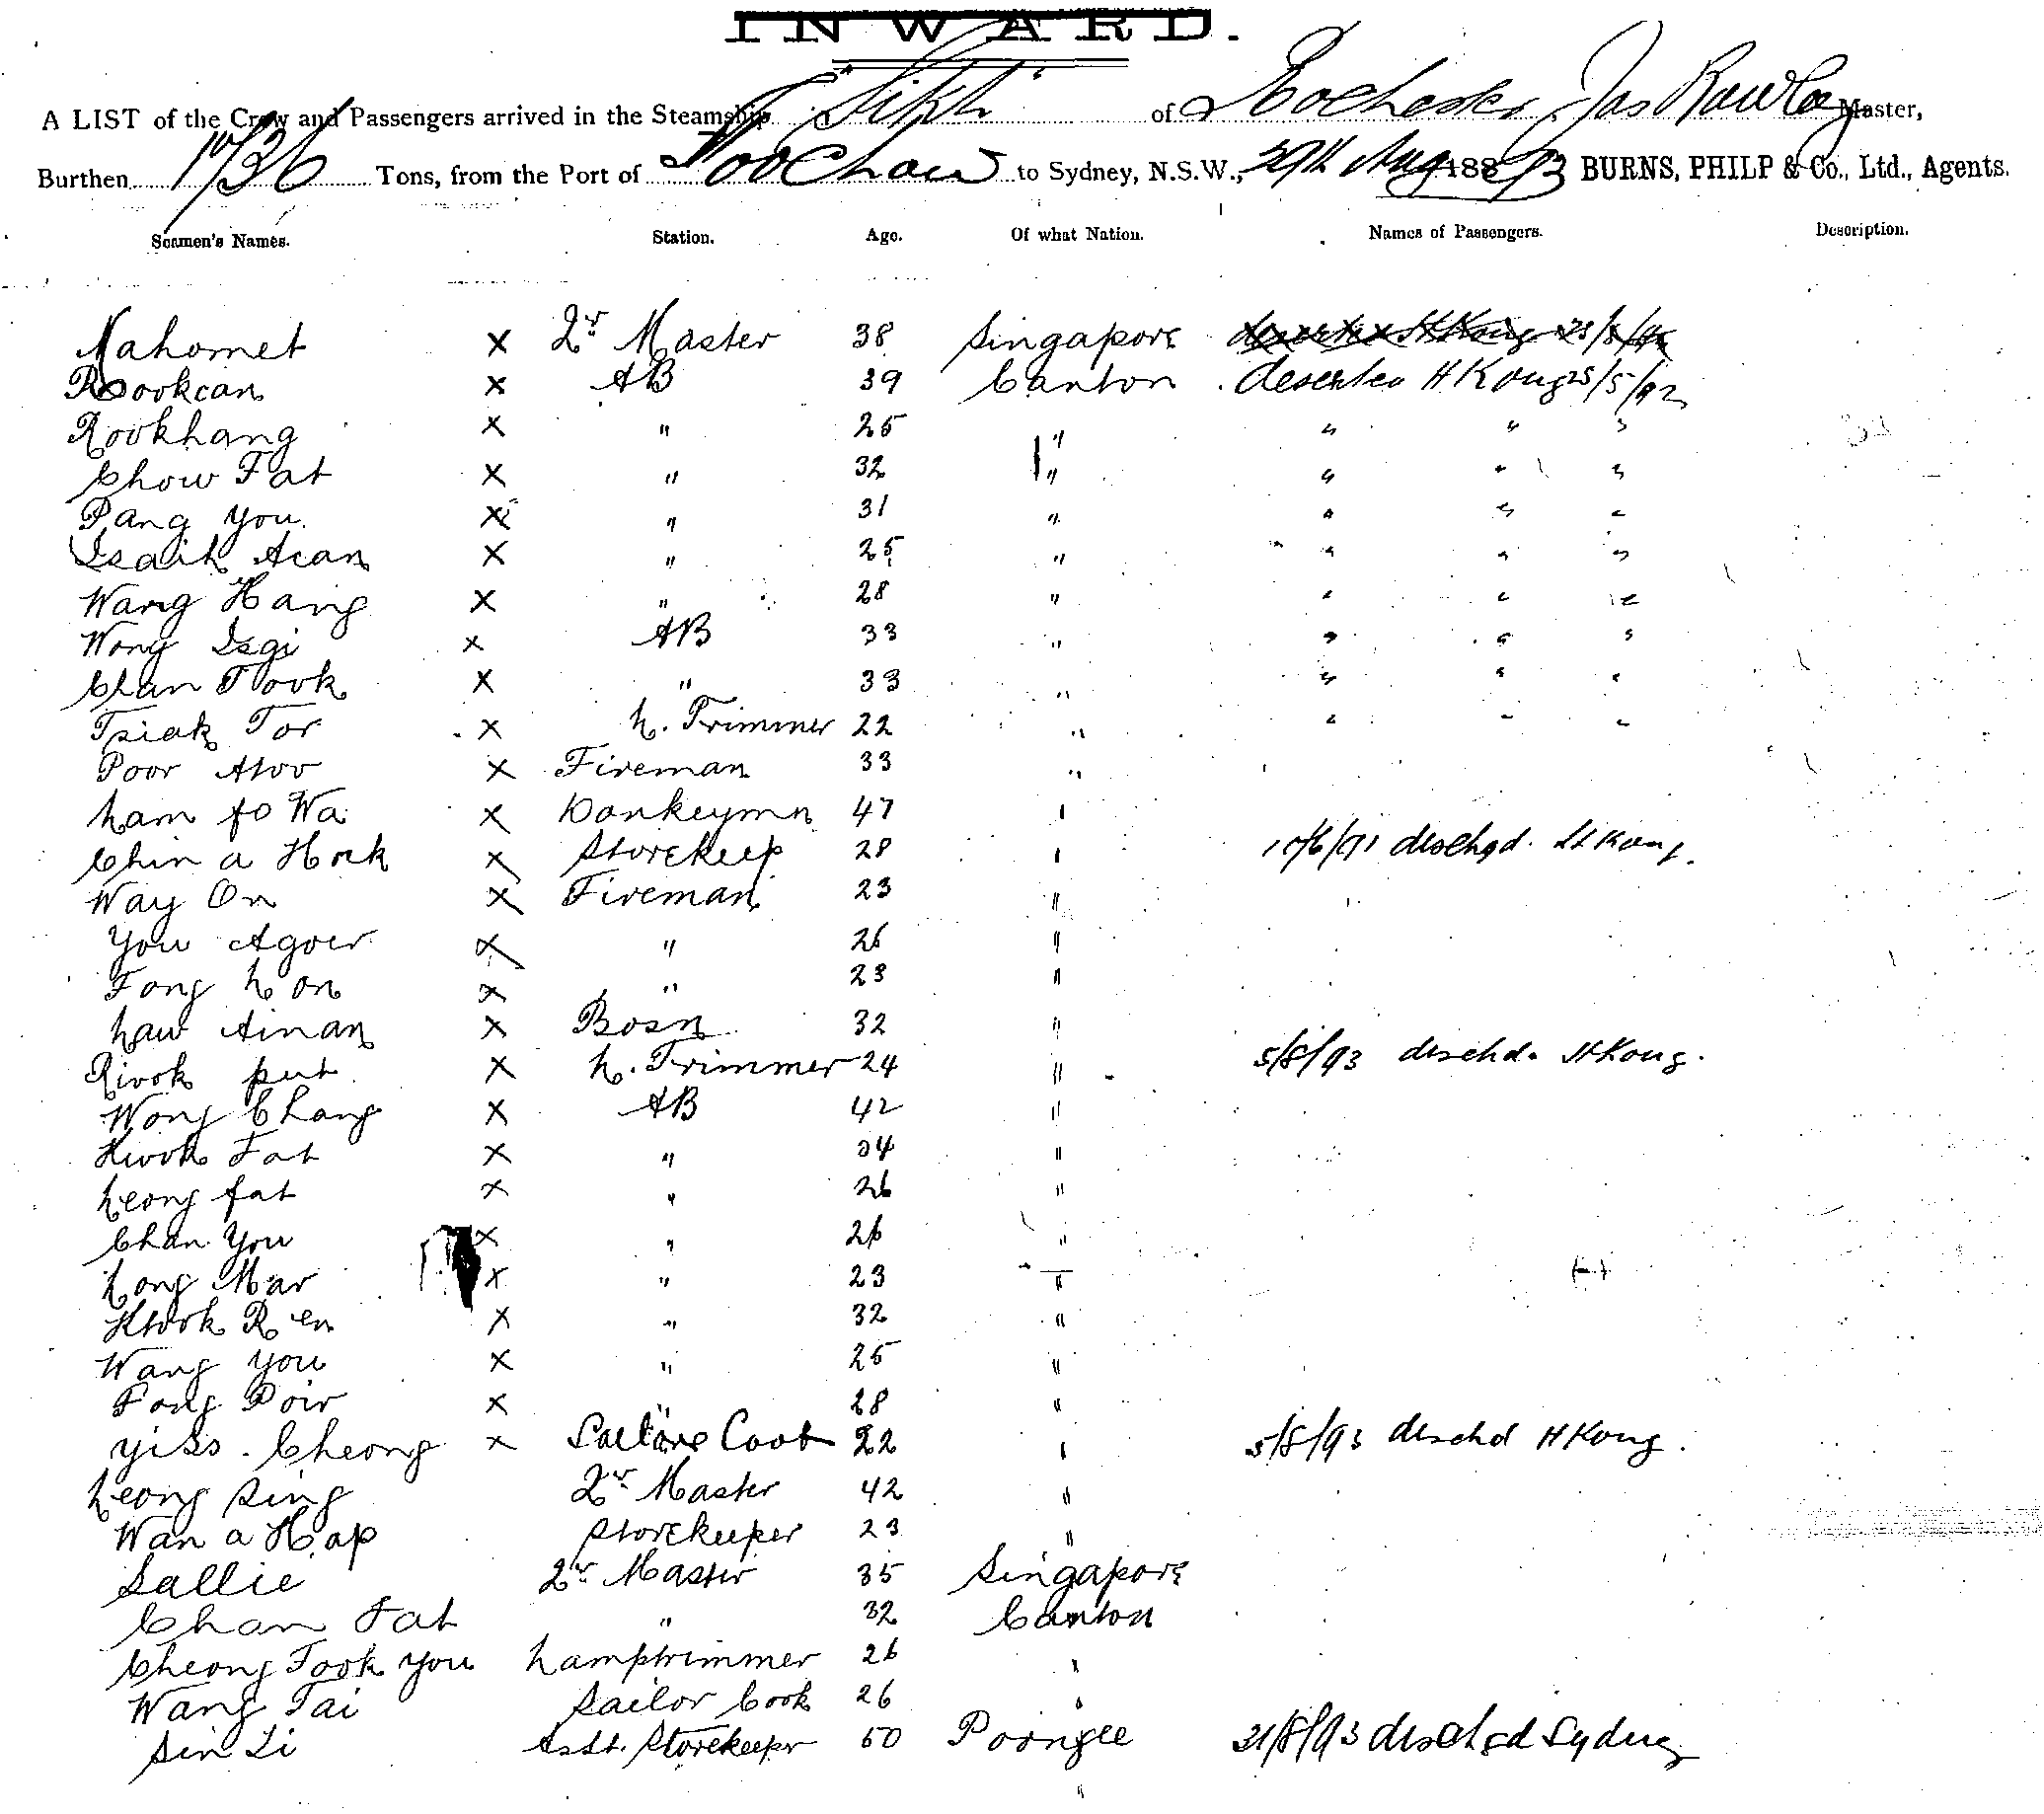 INWARD.
A LIST of the Crew and Passengers arrived in the Steamship "Sikh" of Rochester, Jas Rowley Master,
Burthen 1736 Tons, from the Port of Foochow to Sydney, N.S.W., 29th Aug 1893 BURNS, PHILP & Co., Ltd., Agents.
Seamen's Names. Station. Age. Of what Nation. Names of Passengers. Description.
Mahomet x 2r Master 38 Singapore
Rookcan x AB 39 Canton deserted H Kong 25/5/92
Rookhang x " 25 " " " "
Chow Fat x " 32 " " " "
Pang You x " 31 " " " "
Isaih Acan x " 25 " " " "
Wang Hang x " 28 " " " "
Wong Isgi x AB 33 " " " "
Chan Took x " 33 " " " "
Tsiak Tor x L. Trimmer 22 " " " "
Poor Atoo x Fireman 33 "
Lam fo Wa x Donkeymn 47 "
Chin a Hock x Storekeep 28 " 10/6/91 dischgd. H Kong.
Way On x Fireman 23 "
You Agoer x " 26 "
Fong Lon x " 23 "
Law Ainan x Bosn 32 "
Rivok put x L. Trimmer 24 " 5/8/93 dischd. H Kong.
Wong Chang x AB 42 "
Kwok Fat x " 34 "
Leong fat x " 26 "
Chan You x " 26 "
Long Mar x " 23 "
Kwok Ren x " 32 "
Wang You x " 25 "
Fong Poir x " 28 "
Yiss. Cheong x Sailors Cook 22 " 5/8/93 dischd H Kong.
Leong Sing 2r Master 42 "
Wan a Hap Storekeeper 23 "
Sallie 2r Master 35 Singapore
Chan Fat " 32 Canton
Cheong Fook You Lamptrimmer 26 "
Wang Tai Sailor Cook 26 "
Sin Li Asst. Storekeeper 50 Poongee 31/8/93 dischgd Sydney
"